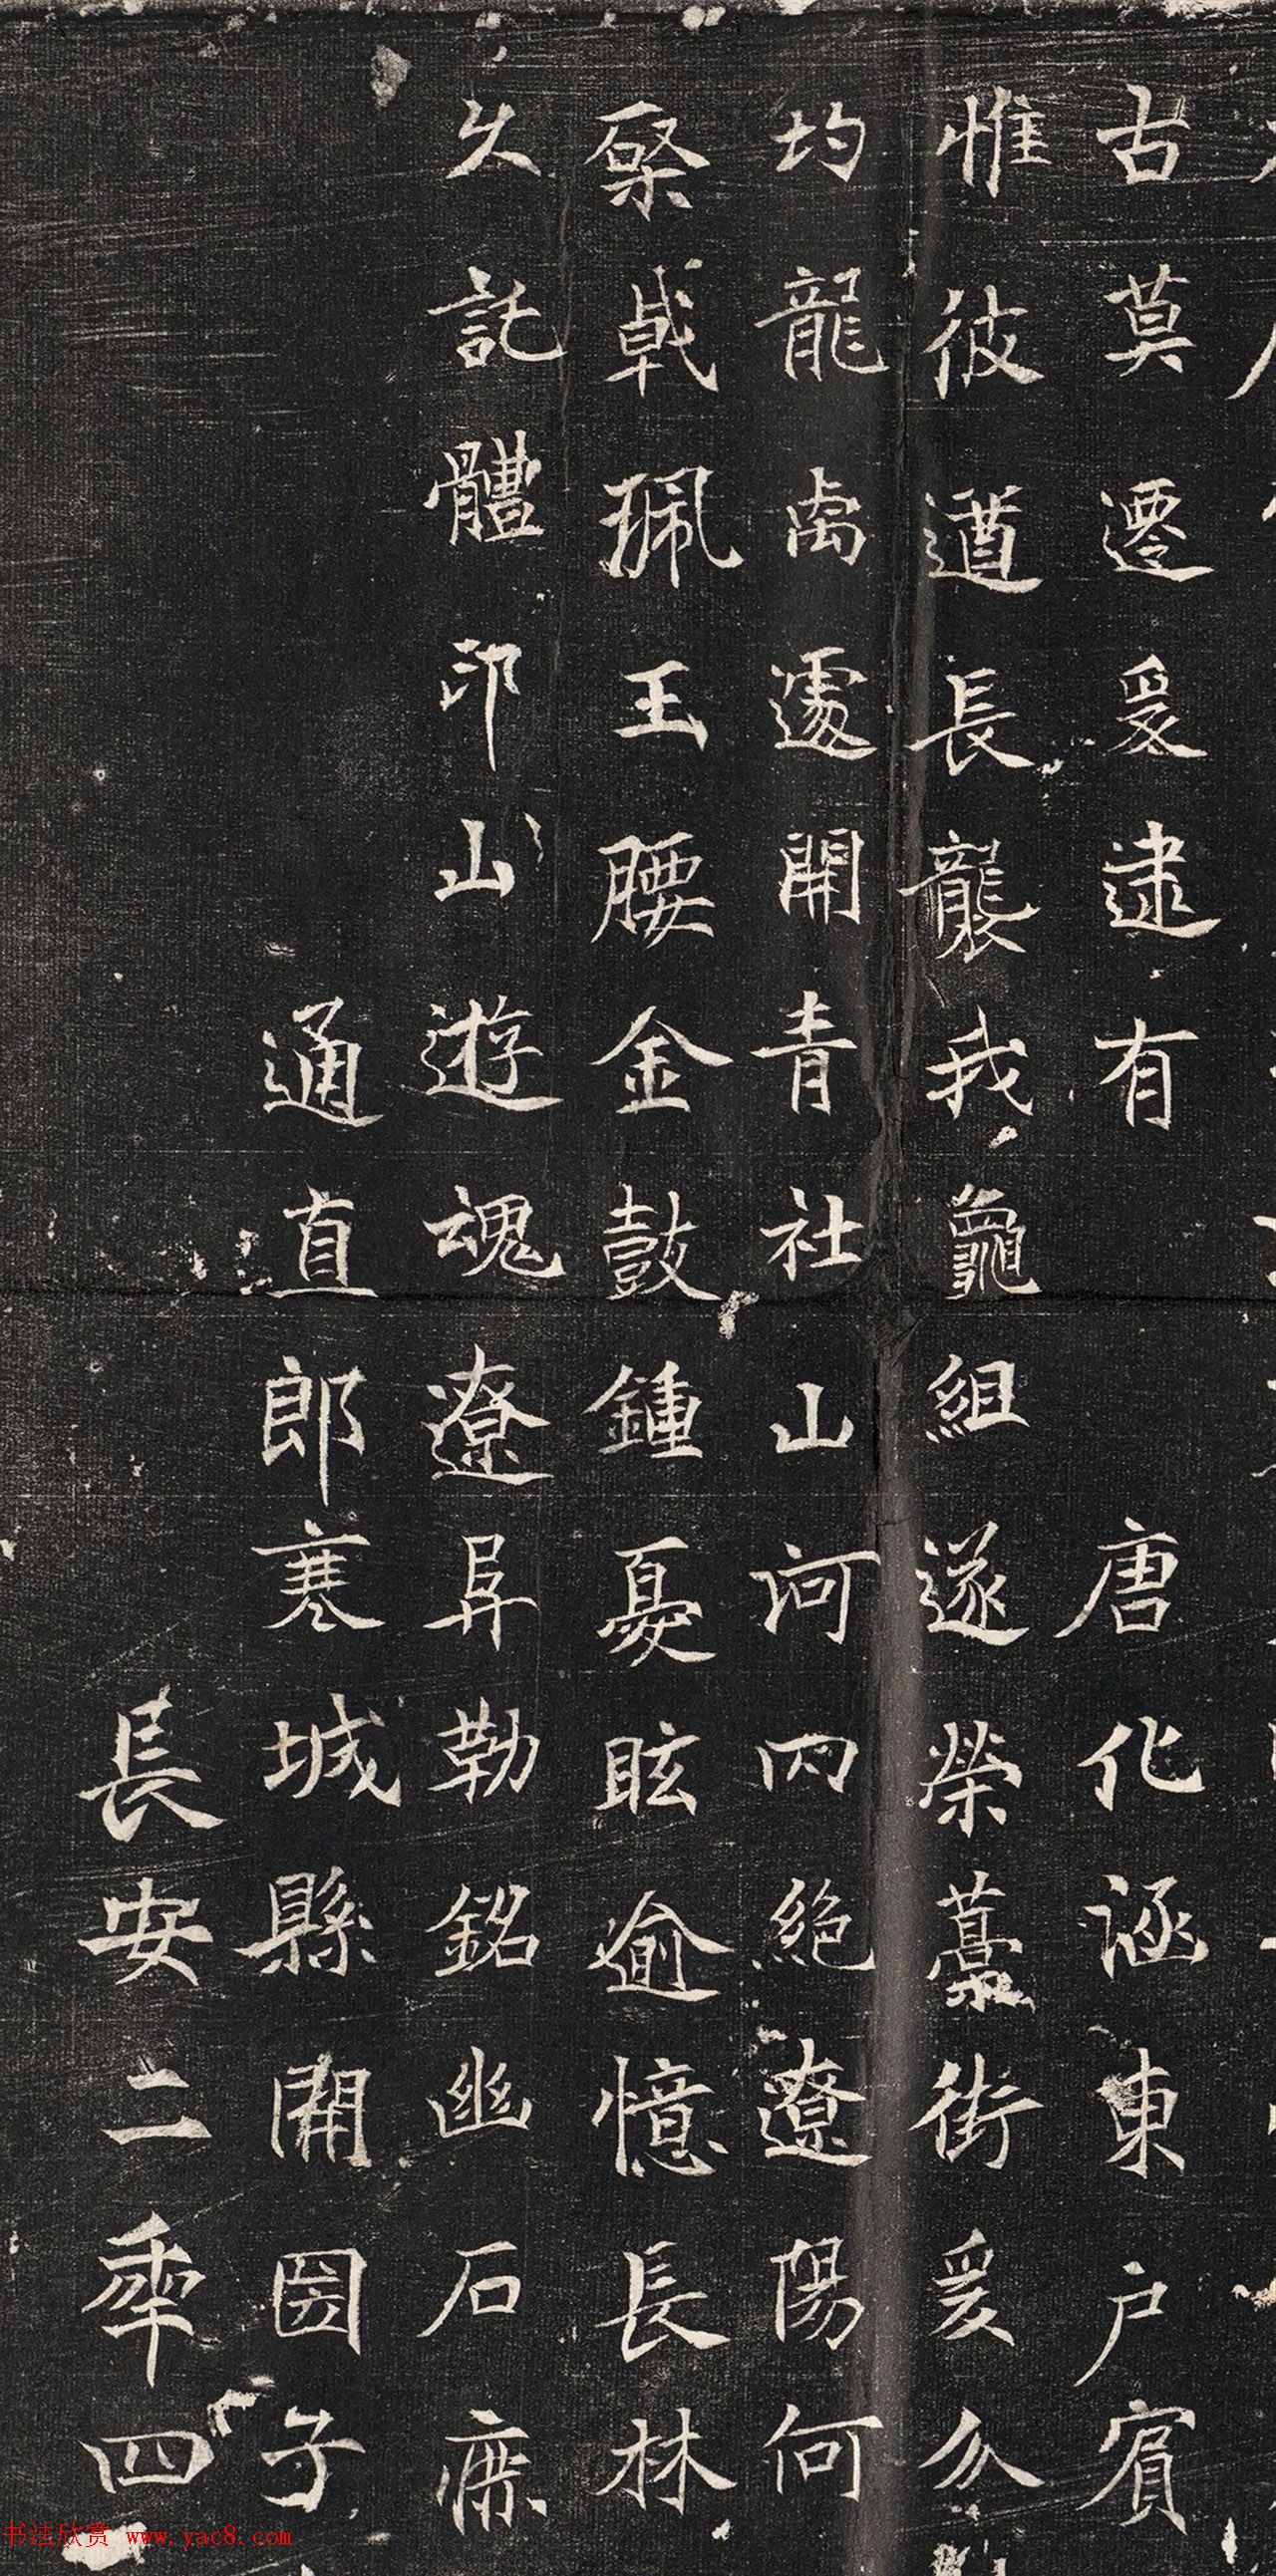 古莫遷爰逮有 唐化涵東户賓
惟彼遒長襲我龜組遂榮藁街爰分
均龍卨遽開青社山河內絕遼陽何
棨戟珮玉腰金鼓鍾憂眩逾憶長林
久託體邙山遊魂遼阜勒銘幽石庶
通直郎褰城縣開國子
長安二年四
书法欣赏 www.yac8.com